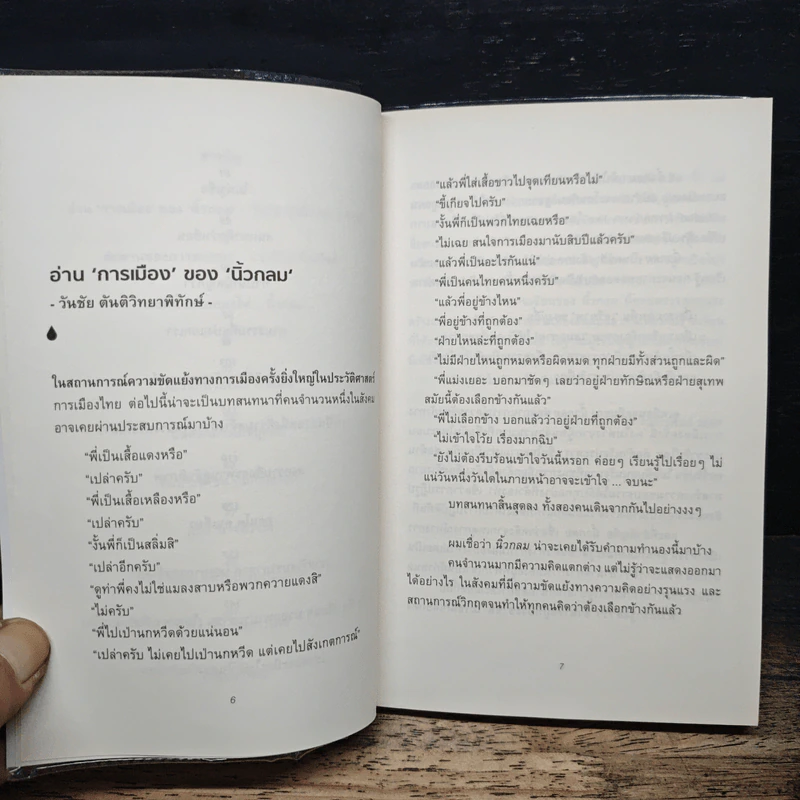 อ่าน ‘การเมือง’ ของ ‘นิ้วกลม‘
- วันชัย ตันติวิทยาพิทักษ์ -
ในสถานการณ์ความขัดแย้งทางการเมืองครั้งยิ่งใหญ่ในประวัติศาสตร์
การเมืองไทย ต่อไปนี้น่าจะเป็นบทสนทนาที่คนจำนวนหนึ่งในสังคม
อาจเคยผ่านประสบการณ์มาบ้าง
“พี่เป็นเสื้อแดงหรือ”
“เปล่าครับ”
“พี่เป็นเสื้อเหลืองหรือ”
“เปล่าครับ”
“งั้นพี่ก็เป็นสลิ่มสิ”
“เปล่าอีกครับ”
“ดูท่าพี่คงไม่ใช่แมลงสาบหรือพวกควายแดงสิ”
“ไม่ครับ”
“พี่ไปเป่านกหวีดด้วยแน่นอน”
“เปล่าครับ ไม่เคยไปเป่านกหวีด แต่เคยไปสังเกตการณ์”
6
“แล้วพี่ใส่เสื้อขาวไปจุดเทียนหรือไม่”
“ขี้เกียจไปครับ”
“งั้นพี่ก็เป็นพวกไทยเฉยหรือ”
“ไม่เฉย สนใจการเมืองมานับสิบปีแล้วครับ”
“แล้วพี่เป็นอะไรกันแน่”
“พี่เป็นคนไทยคนหนึ่งครับ”
“แล้วพี่อยู่ข้างไหน”
“พี่อยู่ข้างที่ถูกต้อง”
“ฝ่ายไหนล่ะที่ถูกต้อง”
“ไม่มีฝ่ายไหนถูกหมดหรือผิดหมด ทุกฝ่ายมีทั้งส่วนถูกและผิด”
“พี่แม่งเยอะ บอกมาชัดๆ เลยว่าอยู่ฝ่ายทักษิณหรือฝ่ายสุเทพ
สมัยนี้ต้องเลือกข้างกันแล้ว”
“พี่ไม่เลือกข้าง บอกแล้วว่าอยู่ฝ่ายที่ถูกต้อง”
“ไม่เข้าใจโว้ย เรื่องมากฉิบ”
“ยังไม่ต้องรีบร้อนเข้าใจวันนี้หรอก ค่อยๆ เรียนรู้ไปเรื่อยๆ ไม่
แน่วันหนึ่งวันใดในภายหน้าอาจจะเข้าใจ ... จบนะ”
บทสนทนาสิ้นสุดลง ทั้งสองคนเดินจากกันไปอย่างงงๆ
ผมเชื่อว่า นิ้วกลม น่าจะเคยได้รับคำถามทำนองนี้มาบ้าง
คนจำนวนมากมีความคิดแตกต่าง แต่ไม่รู้ว่าจะแสดงออกมา
ได้อย่างไร ในสังคมที่มีความขัดแย้งทางความคิดอย่างรุนแรง และ
สถานการณ์วิกฤตจนทำให้ทุกคนคิดว่าต้องเลือกข้างกันแล้ว
7